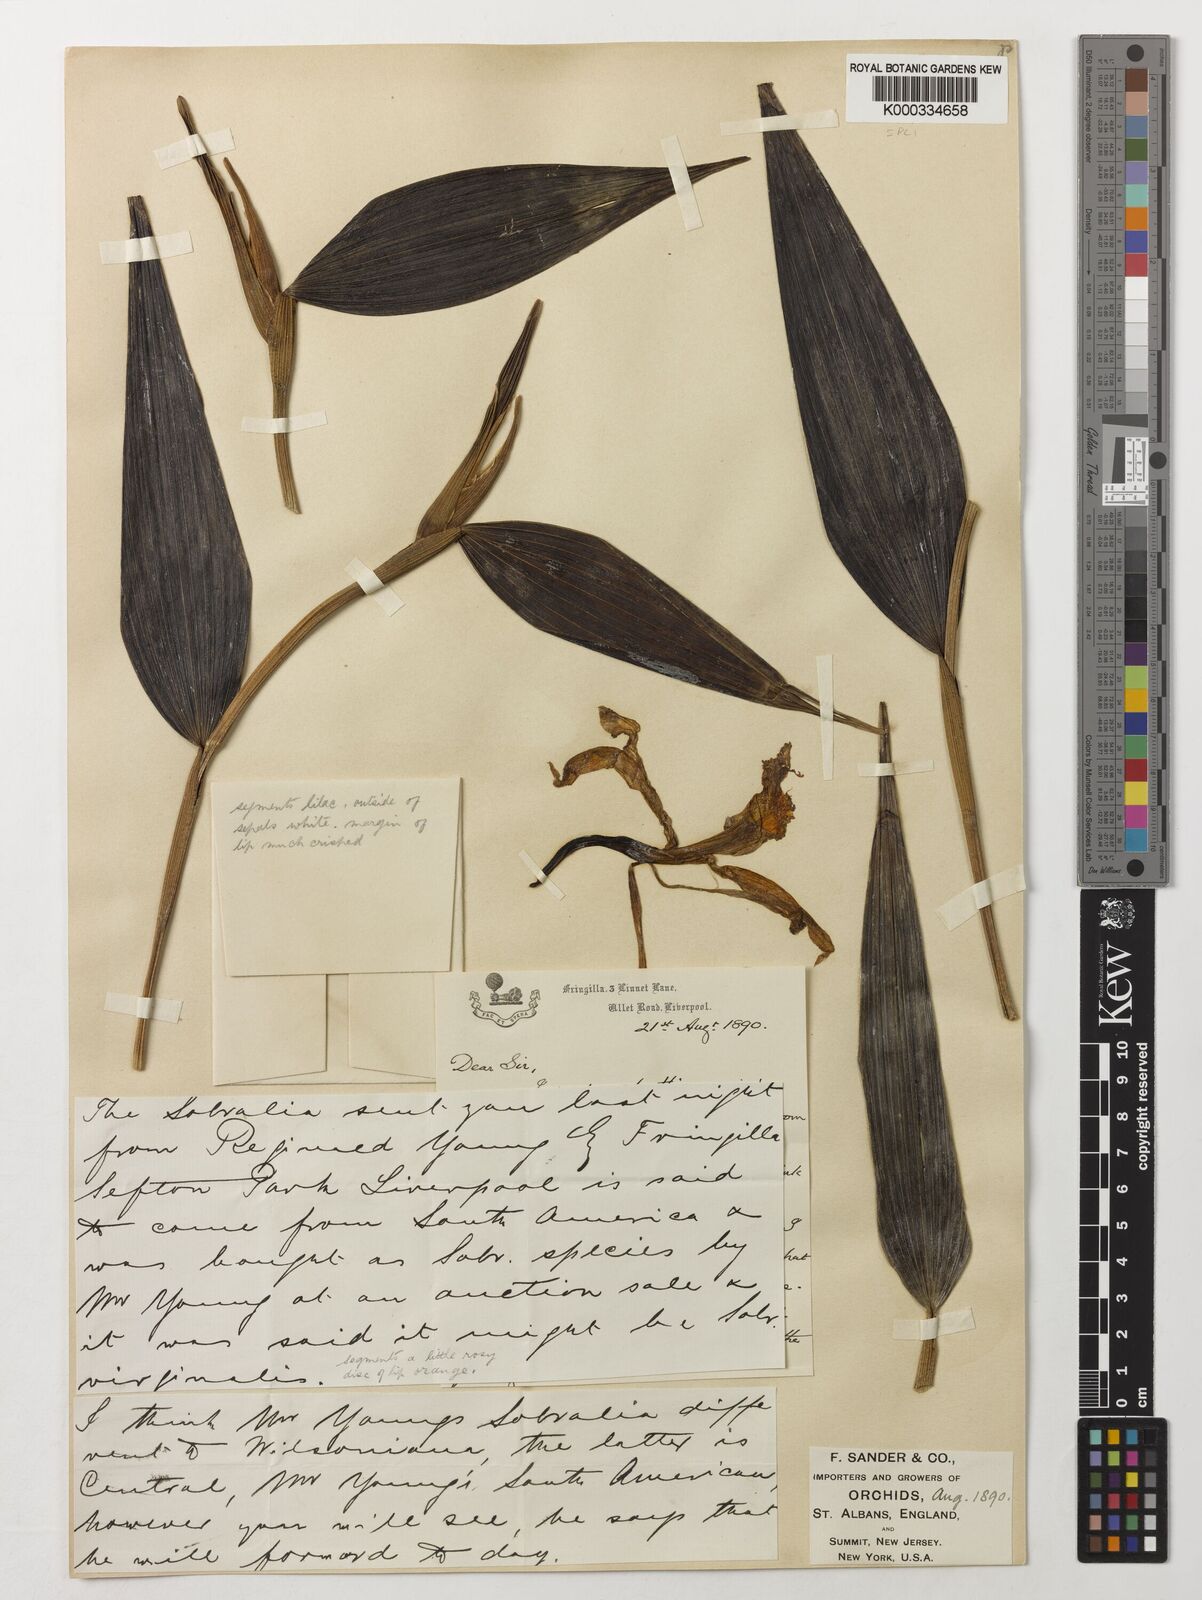 ROYAL BOTANIC GARDENS KEW
K000334658
segments lilac, outside of
sepals white. margin of
lip much crisped
FAC ET SPERA
Fringilla. 3 Linnet Lane,
Ullet Road, Liverpool.
21st Augt. 1890.
Dear Sir,
The Sobralia sent you last night
from Reginald Young Esq Fringilla
Sefton Park Liverpool is said
to come from South America &
was bought as Sobr. species by
Mr Young at an auction sale &
it was said it might be Sobr.
virginalis.
segments a little rosy
disc of lip orange.
I think Mr Youngs Sobralia diffe
rent to Wilsoniana, the latter is
Central, Mr Young's South American,
however you will see, he says that
he will forward to day.
F. SANDER & CO.,
IMPORTERS AND GROWERS OF
ORCHIDS, Aug. 1890.
ST. ALBANS, ENGLAND,
AND
SUMMIT, NEW JERSEY.
NEW YORK, U.S.A.
Golden Thread
Colors by Munsell Color Services Lab
Don Williams
Royal Botanic Gardens
Kew
0 1 2 3 4 5 6 7 8 9 10
cm
copyright reserved